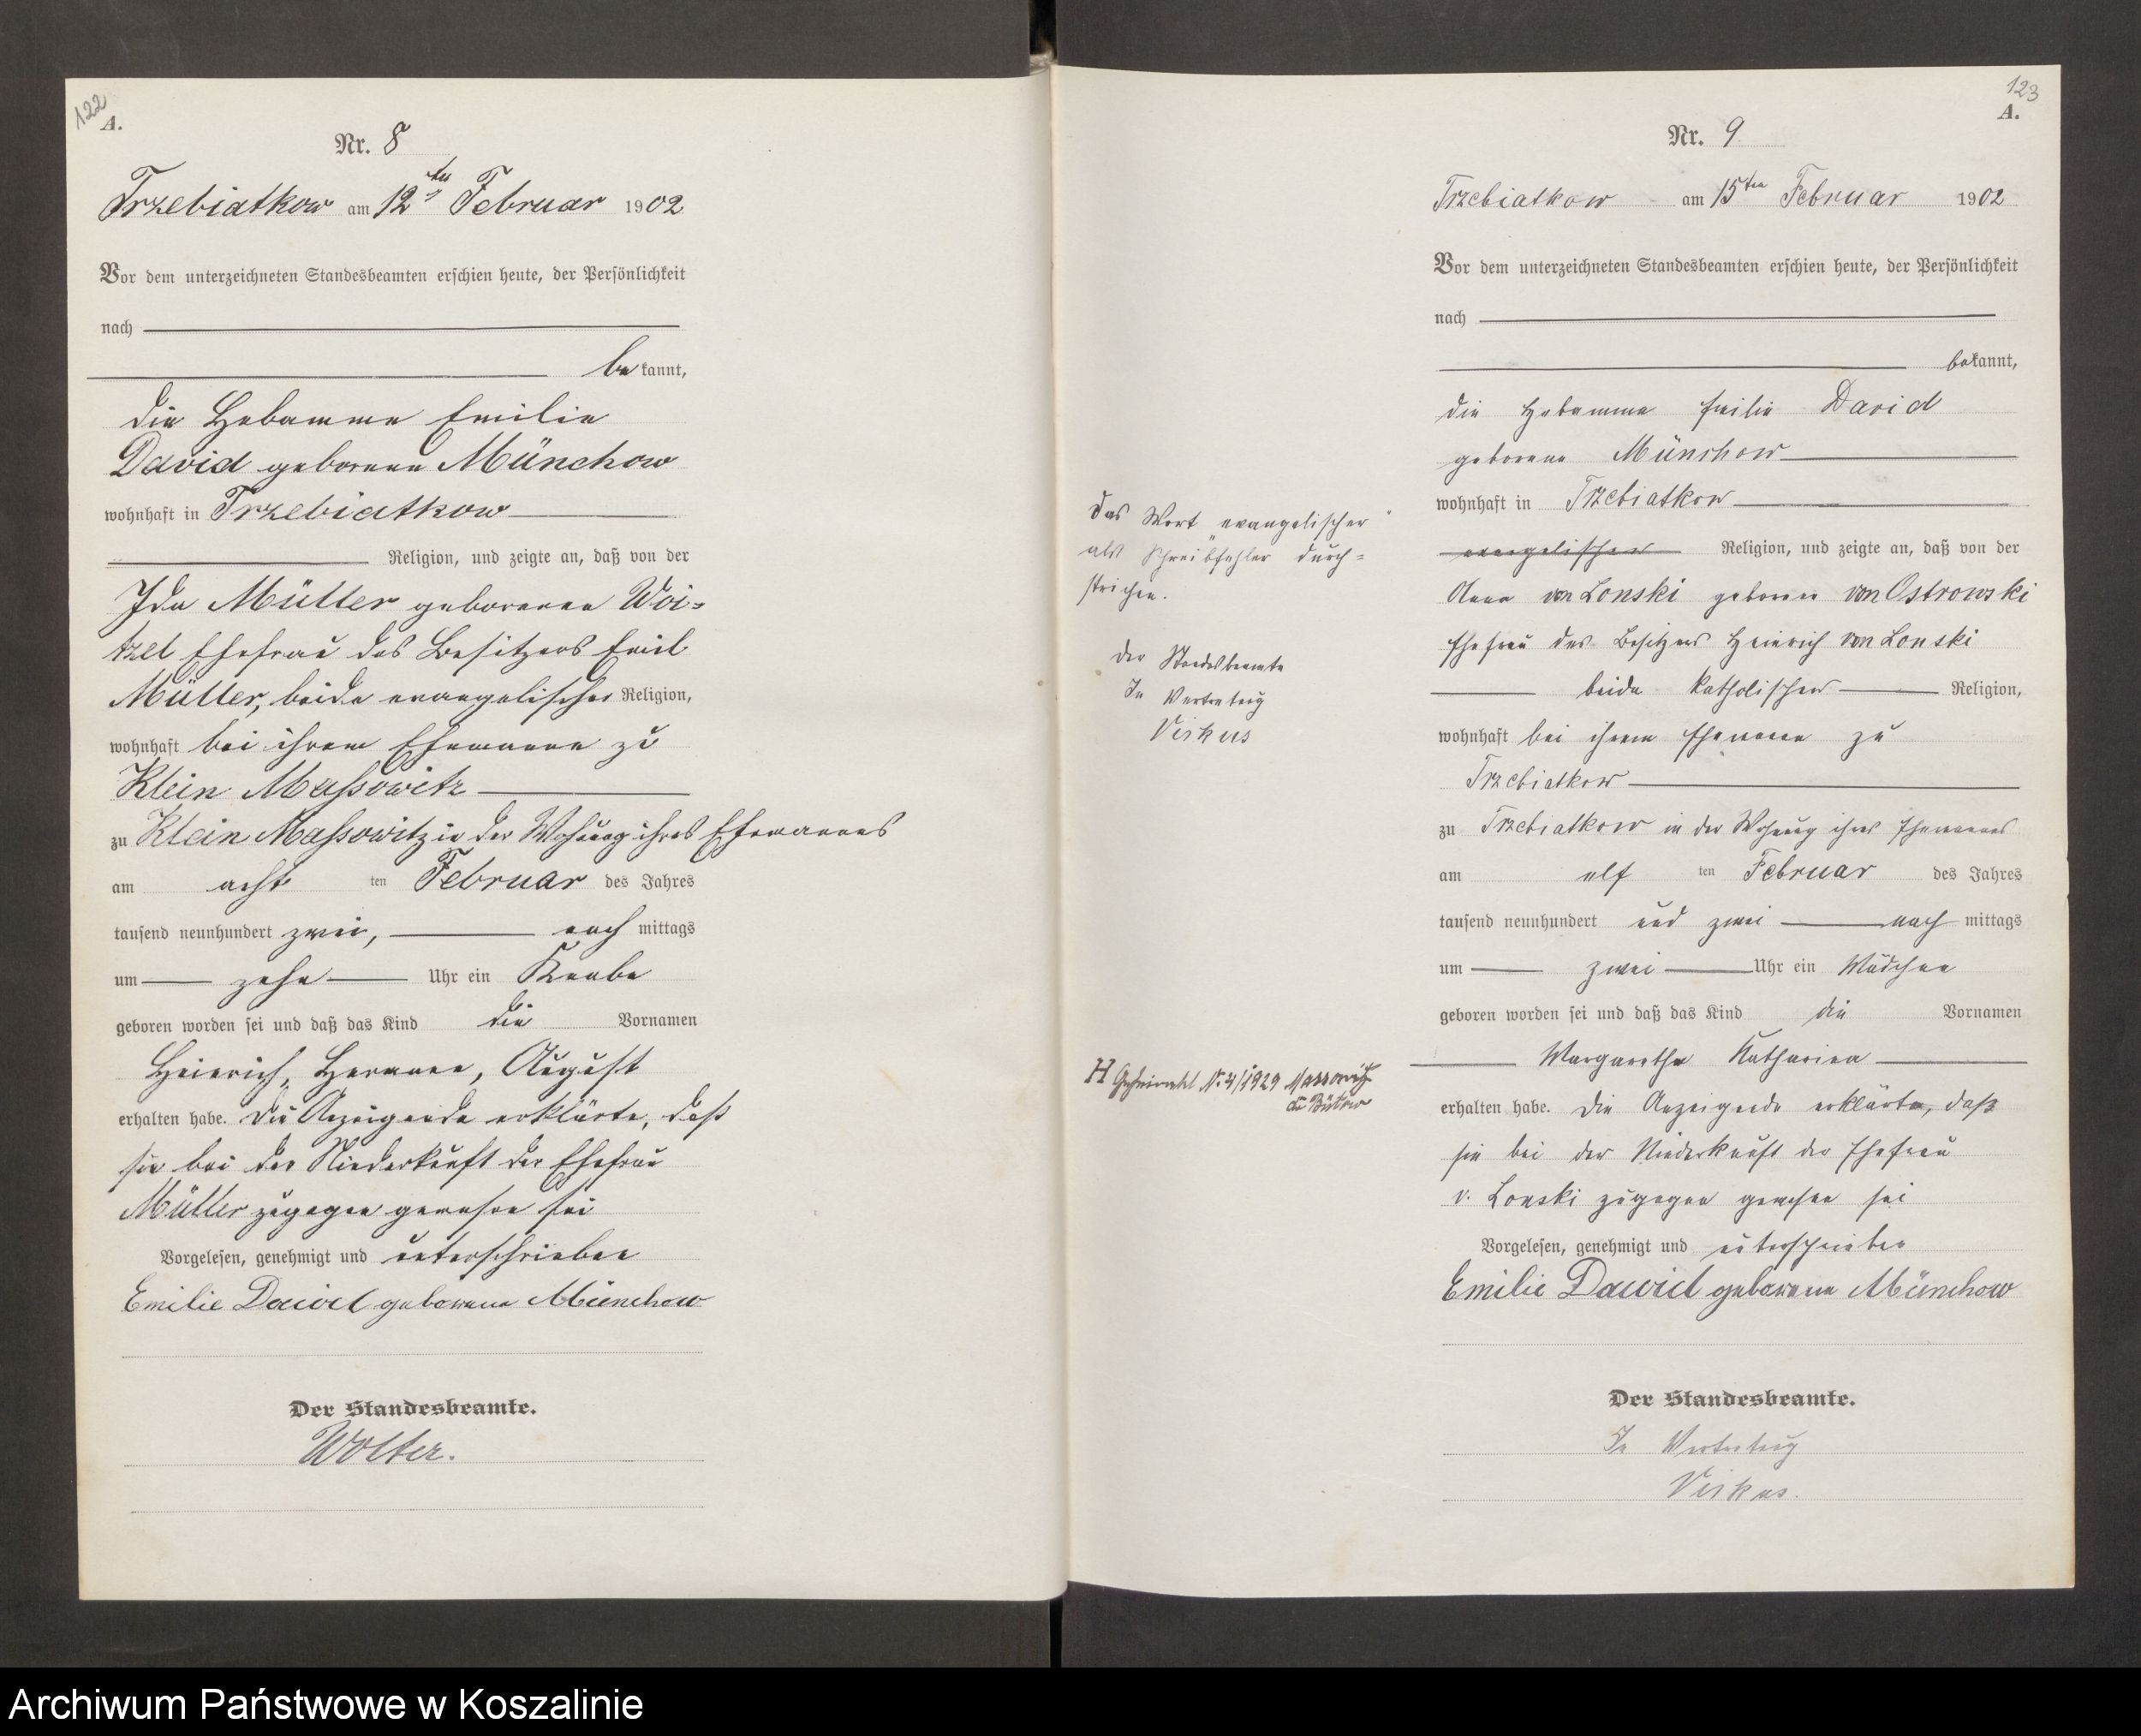 122
A.
Nr. 8
Trzebiatkow am 12ten Februar 1902
Vor dem unterzeichneten Standesbeamten erschien heute, der Persönlichkeit
nach
bekannt,
die Hebamme Emilie
David geborene Münchow
wohnhaft in Trzebiatkow
Religion, und zeigte an, daß von der
Ida Müller geborenen Woi=
tzel Ehefrau des Besitzers Emil
Müller, beide evangelischer Religion,
wohnhaft bei ihrem Ehemanne zu
Klein Massowitz
zu Klein Massowitz in der Wohnung ihres Ehemannes
am acht ten Februar des Jahres
tausend neunhundert zwei, nach mittags
um zehn Uhr ein Knabe
geboren worden sei und daß das Kind die Vornamen
Heinrich, Hermann, August
erhalten habe. Die Anzeigende erklärte, daß
sie bei der Niederkunft der Ehefrau
Müller zugegen gewesen sei
Vorgelesen, genehmigt und unterschrieben
Emilie David geborene Münchow
Der Standesbeamte.
Wolter.
123
A.
Nr. 9
Trzebiatkow am 15ten Februar 1902
Vor dem unterzeichneten Standesbeamten erschien heute, der Persönlichkeit
nach
bekannt,
die Hebamme Emilie David
geborene Münchow
wohnhaft in Trzebiatkow
evangelischer Religion, und zeigte an, daß von der
Anna von Lonski geborene von Ostrowski
Ehefrau des Besitzers Heinrich von Lonski
beide katholischer Religion,
wohnhaft bei ihrem Ehemanne zu
Trzebiatkow
zu Trzebiatkow in der Wohnung ihres Ehemannes
am elf ten Februar des Jahres
tausend neunhundert und zwei nach mittags
um zwei Uhr ein Mädchen
geboren worden sei und daß das Kind die Vornamen
Margarethe Katharina
erhalten habe. Die Anzeigende erklärte, daß
sie bei der Niederkunft der Ehefrau
v. Lonski zugegen gewesen sei
Vorgelesen, genehmigt und unterschrieben
Emilie David geborene Münchow
Der Standesbeamte.
In Vertretung
Virkus.
Das Wort "evangelischer"
als Schreibfehler durch=
strichen.
Der Standesbeamte
In Vertretung
Virkus
H Geheiratet Nr. 4/1929 Massowitz
Kr. Bütow
Archiwum Państwowe w Koszalinie